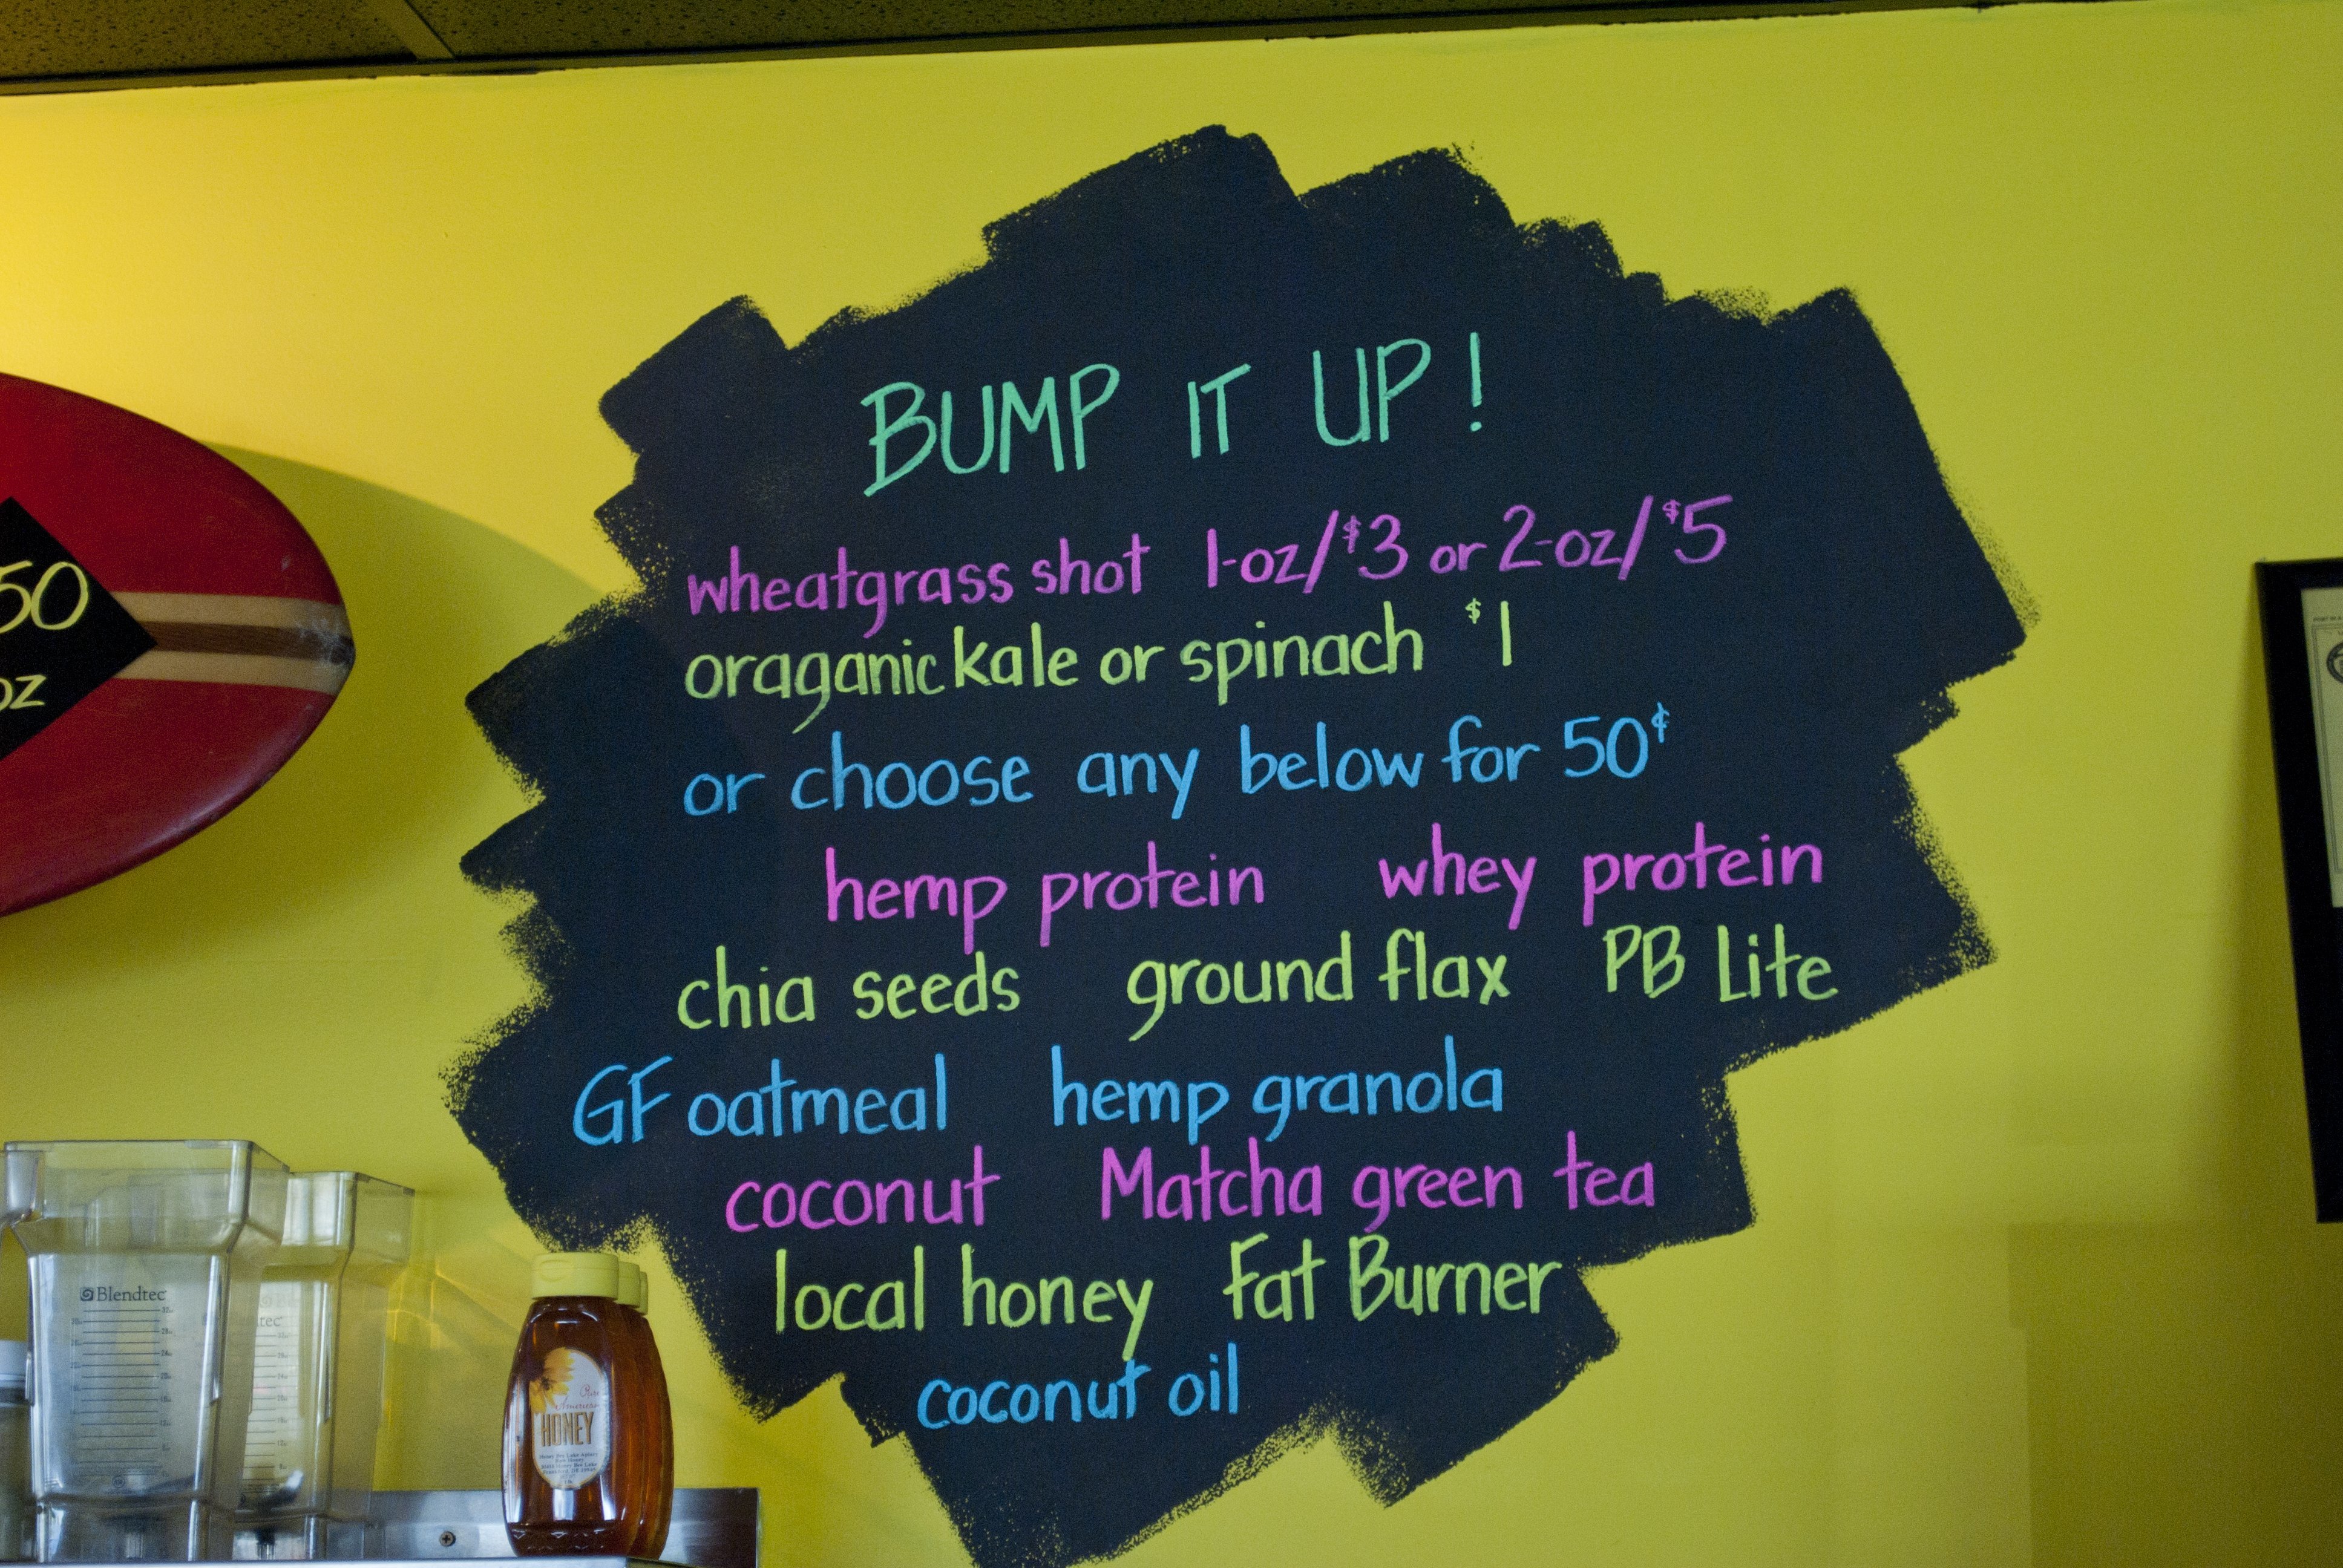 BUMP IT UP!
wheatgrass shot 1-oz/$3 or 2-oz/$5
oraganic kale or spinach $1
or choose any below for 50¢
hemp protein whey protein
chia seeds ground flax PB Lite
GF oatmeal hemp granola
coconut Matcha green tea
local honey Fat Burner
coconut oil
50
oz
Blendtec
HONEY